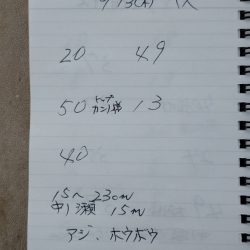 20 49
50 トップガン1弟 13
40
15〜23cm
中ノ瀬 15m
アジ、ホウボウ